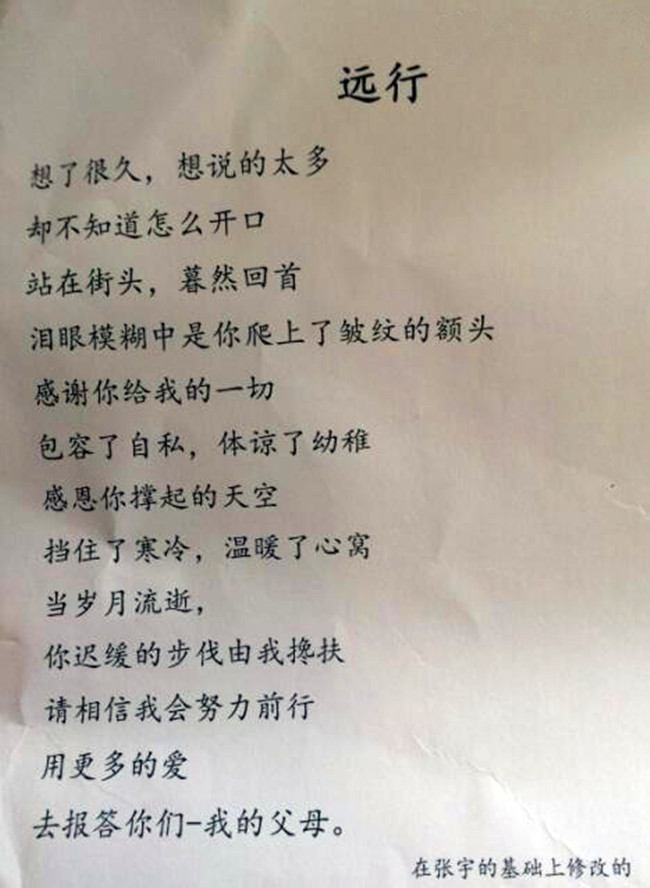 远行
想了很久，想说的太多
却不知道怎么开口
站在街头，暮然回首
泪眼模糊中是你爬上了皱纹的额头
感谢你给我的一切
包容了自私，体谅了幼稚
感恩你撑起的天空
挡住了寒冷，温暖了心窝
当岁月流逝，
你迟缓的步伐由我搀扶
请相信我会努力前行
用更多的爱
去报答你们-我的父母。
在张宇的基础上修改的